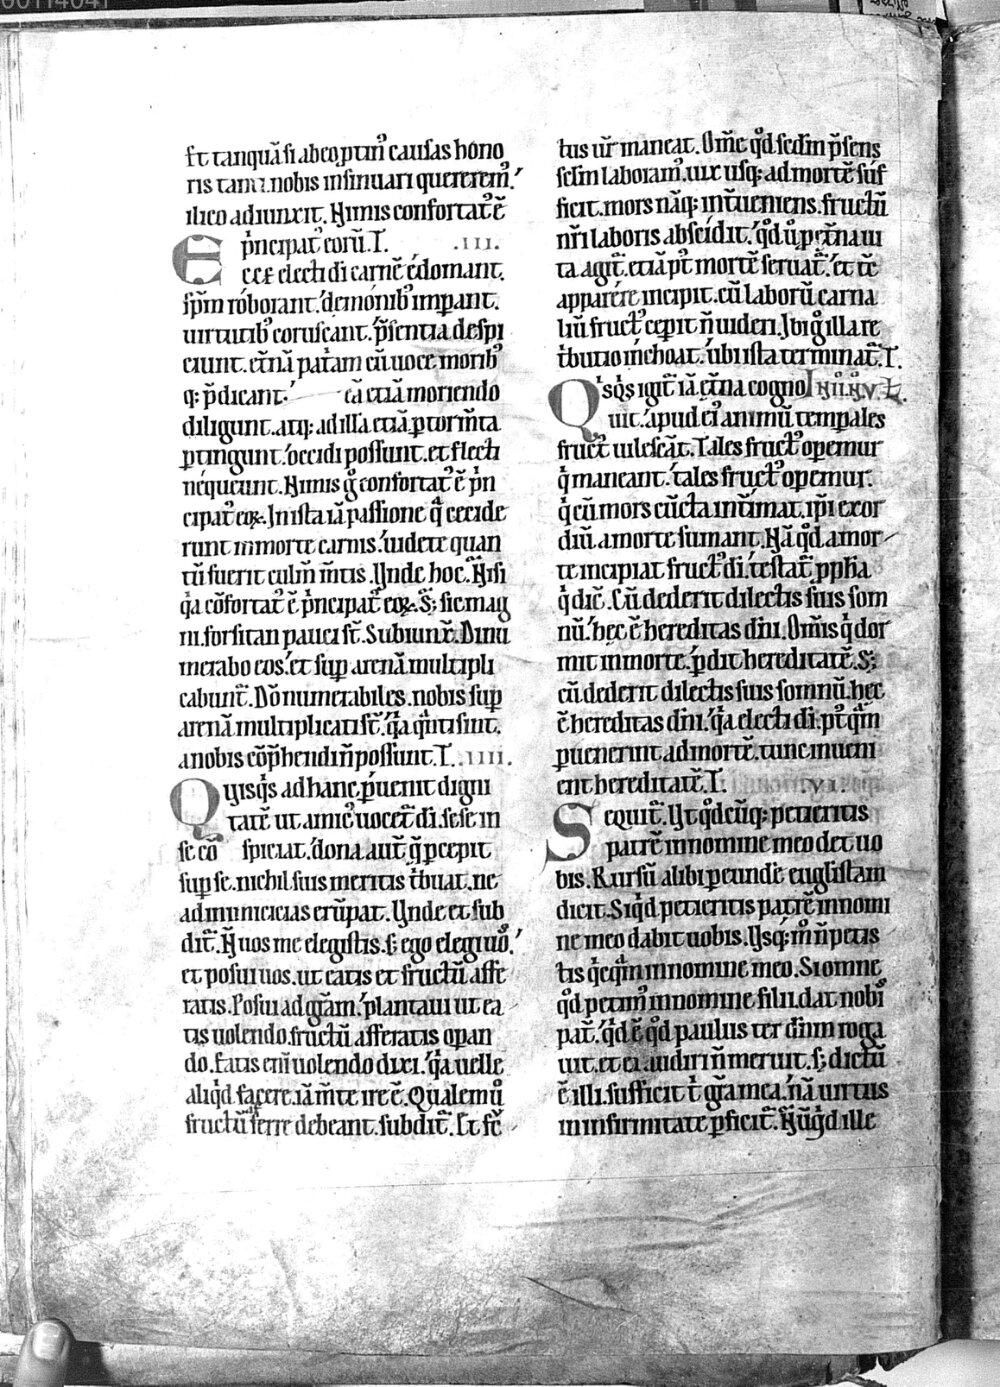 st̄ tanquā si ab eo ptin᷒ causas hono
ris tanti. nobis insinuari quererem᷒.
ilico adiunxit. Nimis confortat᷒ ē
p̍ncipat᷒ eorū. T. .III.
Ecce electi di carnē edomant.
sp̄m roborant. demonib᷒ impant.
uirtutib᷒ coruscant. p̄sentia despi
ciunt. et̄nā pat̍am cū uoce. morib᷒
q; p̄dicant. eā etiā moriendo
diligunt. atq; ad illā etiā p torm̄ta
ptingunt. occidi possunt. et flecti
nequeunt. Nimis g̊ confortat᷒ ē p̍n
cipat᷒ eoꝝ. In ista iā passione q̄ cecide
runt in morte carnis. uidete quan
tū fuerit culm̄ m̄tis. Unde hoc. Nisi
q̍a cōfortat᷒ ē p̍ncipat᷒ eoꝝ. S; sic mag
ni. forsitan pauci st̄. Subiunx̄. Dinu
merabo eos. et sup arenā multipli
cabunt᷒. Dn̄numerabiles. nobis sup
arenā multiplicati st̄. q̍a q̍nti sint.
a nobis cōp̄hendi n̄ possunt. T. .IIII.
Quisq̍s ad hanc puenit digni
tatē ut amic᷒ uocet᷒ di. sese in
se cō spiciat. dona aut̄ q̄ pcepit
sup se. nichil suis meritis t̍buat. ne
ad municicias erūpat. Unde et sub
dit᷒. N̄ uos me elegistis. s; ego elegi uo᷒.
et posui uos. ut eatis et fructū affe
ratis. Posui ad gr̄am. plantaui ut ea
tis uolendo. fructū afferatis opan
do. Eatis eni uolendo dixi. q̍a uelle
aliq̍d facere. iā m̄te ire ē. Qualem ů
fructū ferre debeant. subdit᷒. Et fc̄
tus ur̄ maneat. Om̄e q̊d scdm p̄sens
sclm laboram᷒. uix usq; ad mortē suf
ficit. mors nāq; int̄ueniens. fructū
nr̄i laboris abscidit. q̊d ů p et̄na ui
ta agit᷒. etiā p᷒t mortē seruat᷒. et tc̄
apparere incipit. cū laborū carna
liū fruct᷒ cepit n̄ uideri. Ibi g̊ illa re
t̍butio inchoat. ubi ista terminat᷒. T.
Q̍sq̍s igit᷒ iā et̄na cogno
uit. apud ei᷒ animū temporales
fruct᷒ uilescāt. Tales fruct᷒ operemur
q̍ maneant. tales fruct᷒ operemur.
q̍ cū mors cūcta int̍imat. ip̄i exor
diū a morte sumant. Nā q̊d a mor
te incipiat fruct᷒ di. testat᷒ ppħa
q̍ dic̄. Cū dederit dilectis suis som
nū. hec ē hereditas dn̄i. Om̄is q̍ dor
mit in morte. pdit hereditatē. S;
cū dederit dilectis suis somnū. hec
ē hereditas dn̄i. q̍a electi di. p᷒t q̄m
puenerint ad mortē. tunc inueni
ent hereditatē. T. .VI.
Sequit᷒. Ut q̊dcūq; petieritis
patrē in nomine meo det uo
bis. Rursū alibi p eundē euglistam
dicit. Siq̍d petieritis patrē in nomi
ne meo dabit uobis. Usq; m̊ n̄ petis
tis q̍cq̄m in nomine meo. Si omne
q̊d petim᷒ in nomine filii. dat nobi᷒
pat᷒. q̍d ē q̊d paulus ter dn̄m roga
uit. et exaudiri n̄ meruit. s; dictū
ē illi. sufficit t̍ gr̄a mea. nā uirtus
in infirmitate pficit᷒. Nūq̍d ille